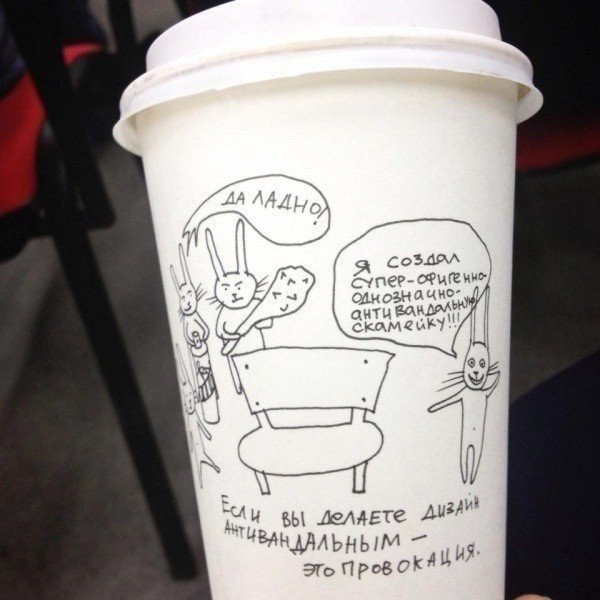 ДА ЛАДНО!
Я СОЗДАЛ
СУПЕР-ОФИГЕННО-
ОДНОЗНАЧНО-
АНТИВАНДАЛЬНУЮ
СКАМЕЙКУ!!!
ЕСЛИ ВЫ ДЕЛАЕТЕ ДИЗАЙН
АНТИВАНДАЛЬНЫМ —
ЭТО ПРОВОКАЦИЯ.